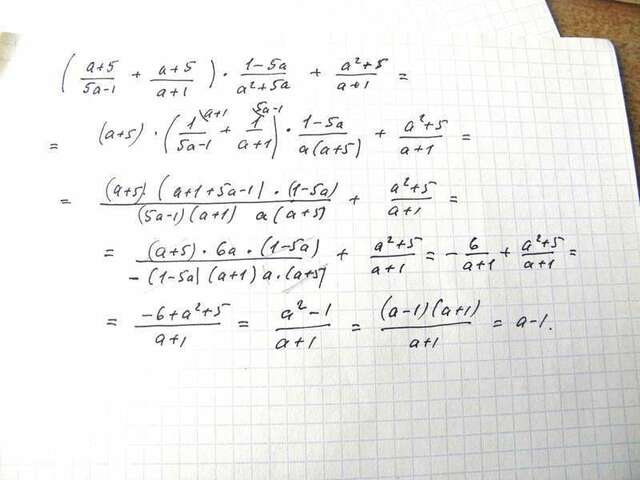 ( (a+5)/(5a-1) + (a+5)/(a+1) ) · (1-5a)/(a²+5a) + (a²+5)/(a+1) =
= (a+5) · ( 1\a+1/(5a-1) + 1\5a-1/(a+1) ) · (1-5a)/(a(a+5)) + (a²+5)/(a+1) =
= (a+5) · (a+1+5a-1) · (1-5a)/((5a-1)(a+1) a(a+5)) + (a²+5)/(a+1) =
= (a+5) · 6a · (1-5a)/(-(1-5a)(a+1)a·(a+5)) + (a²+5)/(a+1) = - 6/(a+1) + (a²+5)/(a+1) =
= (-6+a²+5)/(a+1) = (a²-1)/(a+1) = (a-1)(a+1)/(a+1) = a-1.